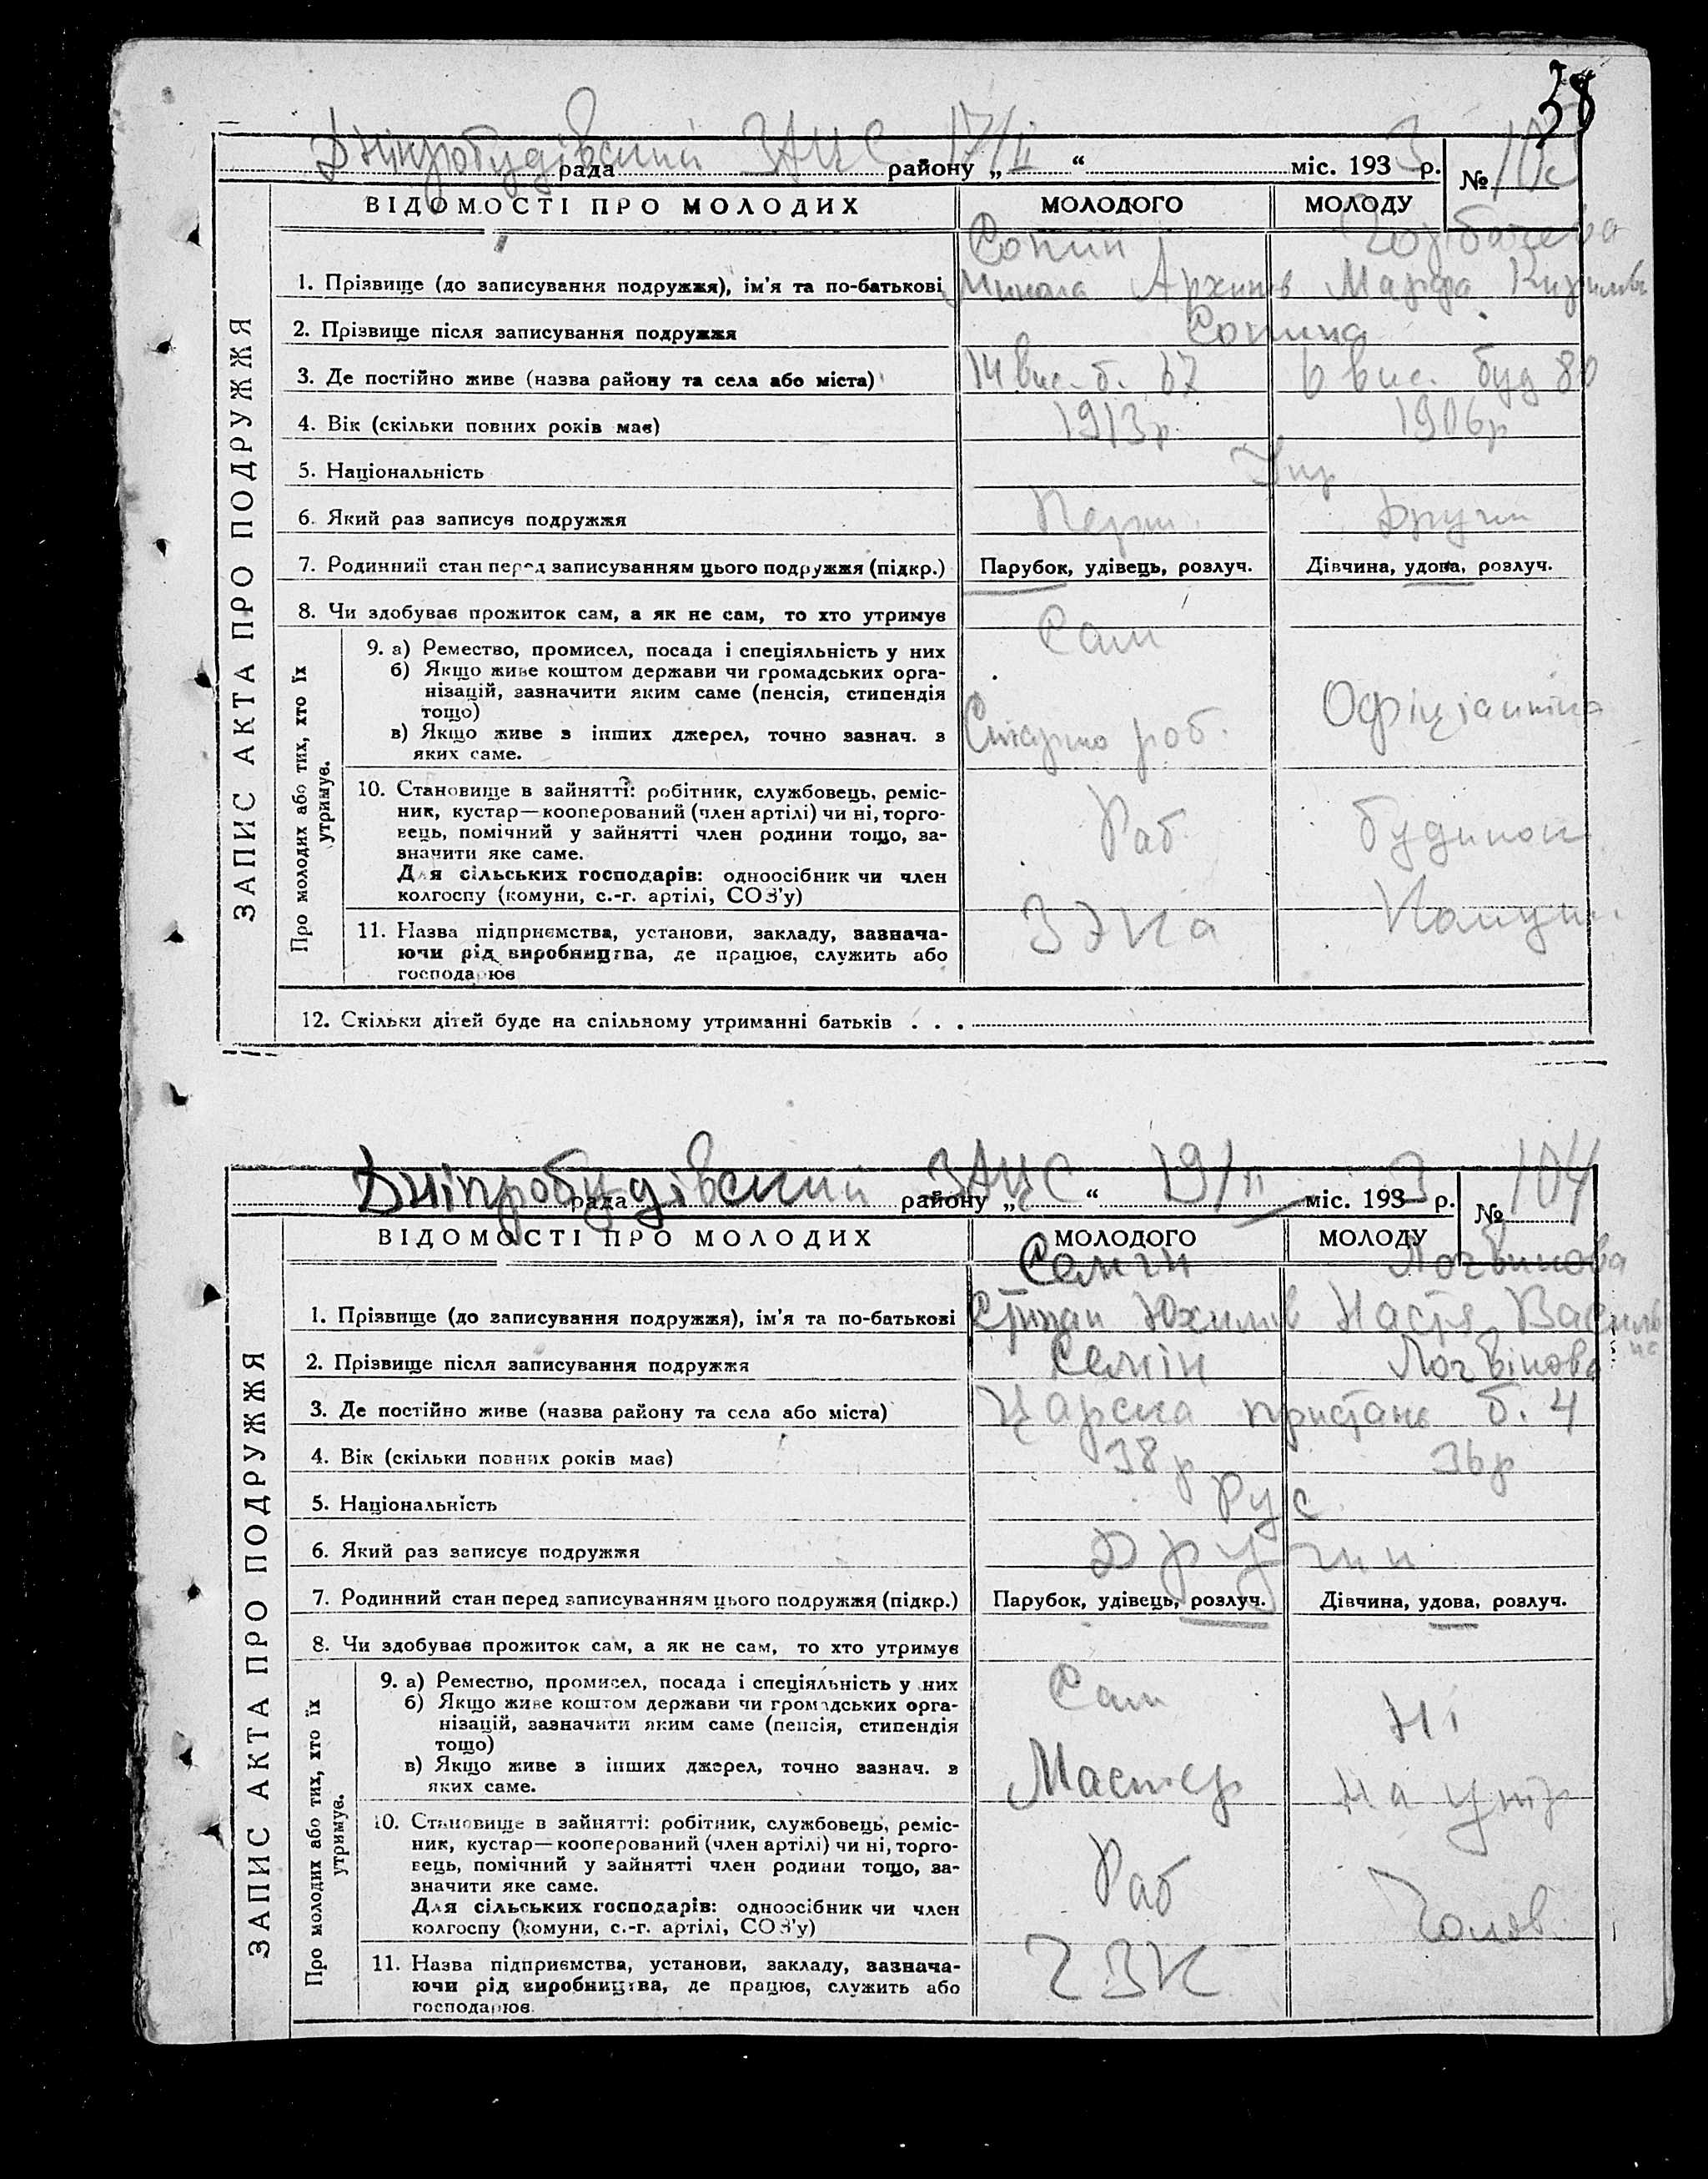 38
Дніпробудівський ЗАЦС 17/II
рада району „ “ міс. 1933 р. №
ВІДОМОСТІ ПРО МОЛОДИХ МОЛОДОГО МОЛОДУ
Сопин
1. Прізвище (до записування подружжя), ім'я та по-батькові Микола Архипов Марфа
2. Прізвище після записування подружжя Сопина
3. Де постійно живе (назва району та села або міста) 14 вис. б. 37 6 вис. буд 80
4. Вік (скільки повних років має) 1913р. 1906р
5. Національність Укр
6. Який раз записує подружжя Перш. Други
7. Родинний стан перед записуванням цього подружжя (підкр.) Парубок, удівець, розлуч. Дівчина, удова, розлуч.
8. Чи здобуває прожиток сам, а як не сам, то хто утримує Сам
ЗАПИС АКТА ПРО ПОДРУЖЖЯ
Про молодих або тих, хто їх утримує.
9. а) Ремество, промисел, посада і спеціяльність у них
б) Якщо живе коштом держави чи громадських орга-
нізацій, зазначити яким саме (пенсія, стипендія
тощо)
в) Якщо живе з інших джерел, точно зазнач. з
яких саме.
роб. Офіціантка
10. Становище в зайнятті: робітник, службовець, реміс-
ник, кустар—кооперований (член артілі) чи ні, торго-
вець, помічний у зайнятті член родини тощо, за-
значити яке саме.
Для сільських господарів: одноосібник чи член
колгоспу (комуни, с.-г. артілі, СОЗ'у)
Раб будинок
11. Назва підприємства, установи, закладу, зазнача-
ючи рід виробництва, де працює, служить або
господарює
12. Скільки дітей буде на спільному утриманні батьків . . .
Дніпробудівский ЗАЦС 19/II
рада району „ “ міс. 1933 р. № 104
ВІДОМОСТІ ПРО МОЛОДИХ МОЛОДОГО МОЛОДУ
Семін Логвинова
1. Прізвище (до записування подружжя), ім'я та по-батькові Юхимів Настя Василь
2. Прізвище після записування подружжя Семін Логвінова
3. Де постійно живе (назва району та села або міста) Царска пристань б. 4
4. Вік (скільки повних років має) 38 р 36р
5. Національність Рус
6. Який раз записує подружжя Другий
7. Родинний стан перед записуванням цього подружжя (підкр.) Парубок, удівець, розлуч. Дівчина, удова, розлуч.
8. Чи здобуває прожиток сам, а як не сам, то хто утримує
ЗАПИС АКТА ПРО ПОДРУЖЖЯ
Про молодих або тих, хто їх утримує.
Сам Ні
9. а) Ремество, промисел, посада і спеціяльність у них
б) Якщо живе коштом держави чи громадських орга-
нізацій, зазначити яким саме (пенсія, стипендія
тощо)
в) Якщо живе з інших джерел, точно зазнач. з
яких саме.
Мастер на утр
10. Становище в зайнятті: робітник, службовець, реміс-
ник, кустар—кооперований (член артілі) чи ні, торго-
вець, помічний у зайнятті член родини тощо, за-
значити яке саме.
Для сільських господарів: одноосібник чи член
колгоспу (комуни, с.-г. артілі, СОЗ'у)
Раб Чолов.
11. Назва підприємства, установи, закладу, зазнача-
ючи рід виробництва, де працює, служить або
господарює